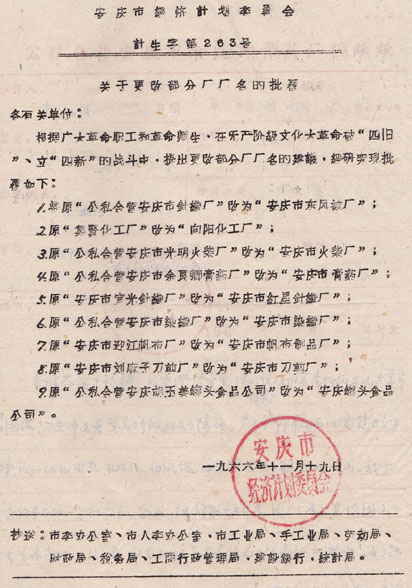 安庆市经济计划委员会
计生字第263号
关于更改部分厂厂名的批复
各有关单位：
根据广大革命职工和革命师生，在无产阶级文化大革命破“四旧
”、立“四新”的战斗中，提出更改部分厂厂名的建议，经研究现批
复如下：
1.将原“公私合营安庆市针织厂”改为“安庆市东风织厂”；
2.原“集贤化工厂”改为“向阳化工厂”；
3.原“公私合营安庆市光明火柴厂”改为“安庆市火柴厂”；
4.原“公私合营安庆市余良卿膏药厂”改为“安庆市膏药厂”；
5.原“安庆市宜光针织厂”改为“安庆市红星针织厂”；
6.原“公私合营安庆市染织厂”改为“安庆市染织厂”；
7.原“安庆市迎江帆布厂”改为“安庆市帆布制品厂”；
8.原“安庆市刘麻子刀剪厂”改为“安庆市刀剪厂”；
9.原“公私合营安庆胡玉美罐头食品公司”改为“安庆罐头食品
公司”。
安庆市
经济计划委员会
一九六六年十一月十九日
抄送：市委办公室、市人委办公室、市工业局、手工业局、劳动局、
财政局、税务局、工商行政管理局、建设银行、统计局。